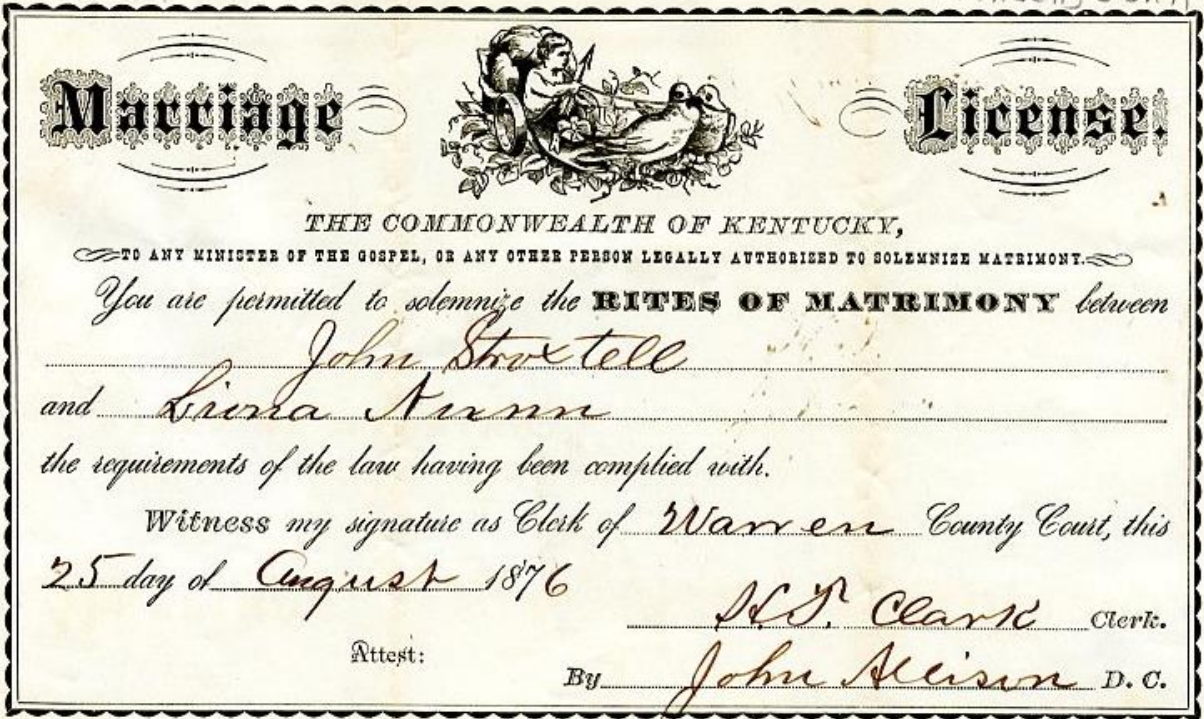 Marriage License.
THE COMMONWEALTH OF KENTUCKY,
TO ANY MINISTER OF THE GOSPEL, OR ANY OTHER PERSON LEGALLY AUTHORISED TO SOLEMNIZE MATRIMONY.
You are permitted to solemnize the RITES OF MATRIMONY between
John Stroxtell
and Liona Nunn
the requirements of the law having been complied with.
Witness my signature as Clerk of Warren County Court, this
25 day of August 1876
Clark Clerk.
Attest:
By John Allison D. C.